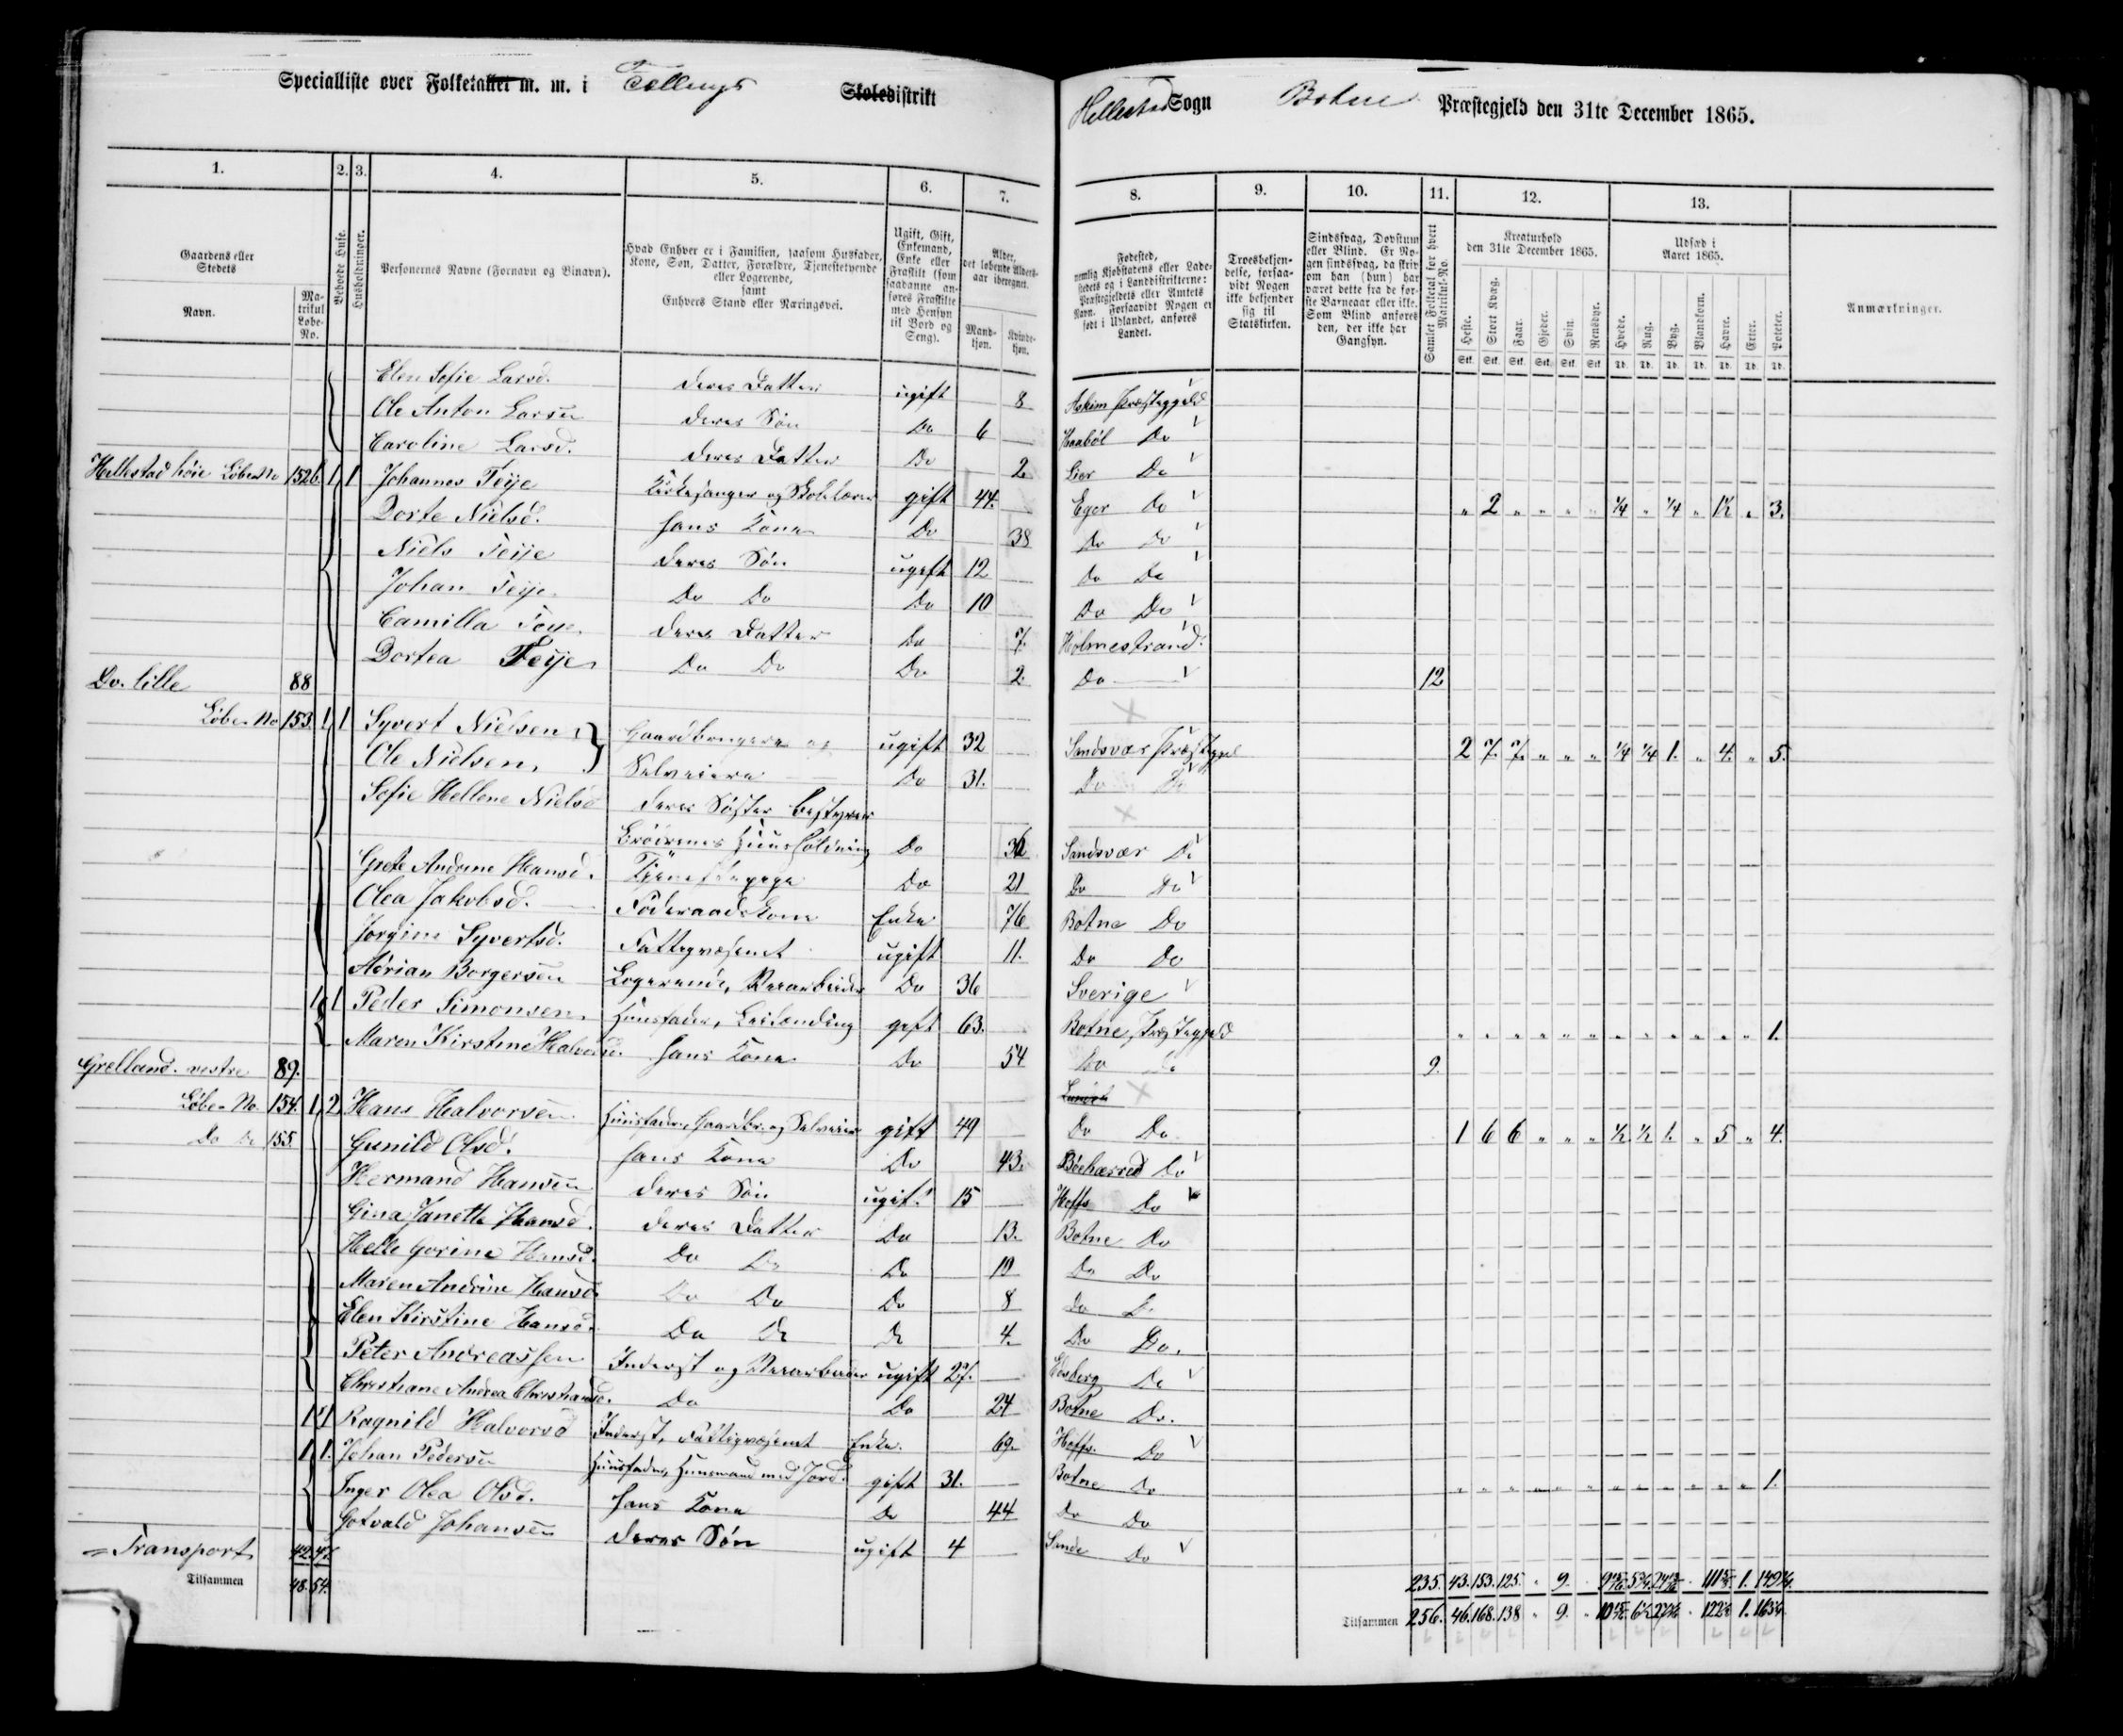 Specialliste over Folketallet m. m. i Tællings Skoledistrikt Hellestad Sogn Botne Præstegjeld den 31te December 1865.
1. 2. 3. 4. 5. 6. 7. 8. 9. 10. 11. 12. 13.
Gaardens eller Stedets
Navn.
Matrikul Løbe-No.
Beboede Huse.
Husholdninger.
Personernes Navne (Fornavn og Binavn).
Hvad Enhver er i Familien, saasom Husfader, Kone, Søn, Datter, Forældre, Tjenestetyende eller Logerende, samt Enhvers Stand eller Næringsvei.
Ugift, Gift, Enkemand, Enke eller Fraskilt (som saadanne anføres Fraskilte med Hensyn til Bord og Seng).
Alder, det løbende Aldersaar iberegnet.
Mandkjøn. Kvindekjøn.
Fødested, nemlig Kjøbstadens eller Ladestedets og i Landdistrikterne: Præstegjeldets eller Amtets Navn. Forsaavidt Nogen er født i Udlandet, anføres Landet.
Troesbekjendelse, forsaavidt Nogen ikke bekjender sig til Statskirken.
Sindssvag, Døvstum eller Blind. Er Nogen sindssvag, da skrives om han (hun) har været dette fra de første Barneaar eller ikke. Som Blind anføres den, der ikke har Gangsyn.
Samlet Folketal for hvert Matrikul-No.
Kreaturhold den 31te December 1865.
Heste. Stort Kvæg. Faar. Gjeder. Svin. Rensdyr.
Udsæd i Aaret 1865.
Hvede. Rug. Byg. Blandkorn. Havre. Erter. Poteter.
Anmærkninger.
Elen Sofie Larsd. deres Datter ugift 8 Askim Præstegjeld
Ole Anton Larsen deres Søn Do 6 Haabøl Do
Caroline Larsd. deres Datter Do 2. Lier Do
Hellestad høie Løbe No 152b. 1 1 Johannes Feije Kirkesanger og Skolelærer gift 44. Eger Do " 2 " " " " 1/4 " 1/4 " 1 1/2 " 3.
Dorte Nielsd. hans Kone Do 38 Do Do
Niels Feije deres Søn ugift 12 Do Do
Johan Feije Do Do Do 10 Do Do
Camilla Feije deres Datter Do 7. Holmestrand.
Dortea Feije Do Do Do 2. Do 12
Do. lille 88
Løbe No 153. 1 1 Syvert Nielsen Gaardbrugere og ugift 32 Sandsvær Præstegjeld 2 7. 7. " " " 1/4 1/4 1. " 4. " 5.
Ole Nielsen Selveiere Do 31. Do Do
Sofie Hellene Nielsd deres Søster bestyrer
Brødrenes Huusholdning Do 36 Sandsvær Do
Grete Andrine Hansd. Tjenestepige Do 21 Do Do
Olea Jakobsd. Føderaadskone Enke 76 Botne Do
Jorgine Syvertsd. Fattigvæsenet ugift 11. Do Do
Adrian Borgersen Logerende, Veiarbeider Do 36 Sverige
1 1 Peder Simonsen Huusfader, Leilænding gift 63. Botne Præstegjeld " " " " " " " " " " " " 1.
Maren Kirstine Halvorsd. hans Kone Do 54 Do Do 9.
Grelland vestre 89.
Løbe No. 154. 1 2 Hans Halvorsen Huusfader, Gaardbr. og Selveier gift 49 Do Do 1 6 6 " " " 1/2 1/2 1. " 5 " 4.
Do Do 155. Gunild Olsd. hans Kone Do 43. Böeherred Do
Hermand Hansen deres Søn ugift 15 Hoffs Do
Gina Janette Hansd. deres Datter Do 13. Botne Do
Helle Gorine Hansd. Do Do Do 10 Do Do
Maren Andrine Hansd Do Do Do 8 Do Do
Elen Kirstine Hansd. Do Do Do 4. Do Do.
Peter Andreassen Inderst og Veiarbeider ugift 27. Edsberg Do
Christiane Andrea Christiansd. Do Do 24 Botne Do.
1 1 Ragnild Halvorsd Inderst, Fattigvæsenet Enke. 69. Hoffs. Do
1 1. Johan Pedersen Huusfader, Huusmand med Jord. gift 31. Botne Do " " " " " " " " " " " " 1.
Inger Olea Olsd. hans Kone Do 44 Do Do
Gotvald Johansen deres Søn ugift 4 Sande Do
Transport 42. 47. 235. 43. 153. 125. " 9.
Tilsammen 48. 54. Tilsammen 256. 46. 168. 138 " 9.